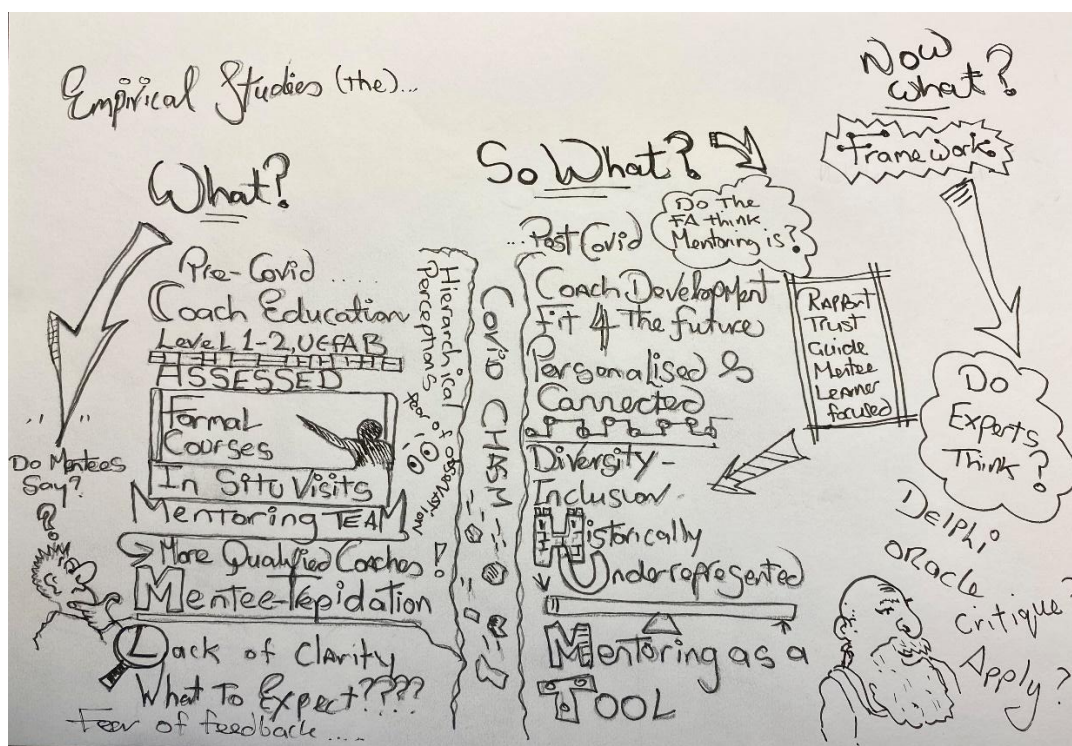 Empirical Studies (the)...
What?
Do Mentees
Say?
?
Pre-Covid ....
Coach Education
Level 1-2, UEFA B
ASSESSED
Formal
Courses
In Situ Visits
Mentoring TEAM
More Qualified Coaches!
Mentee-Tepidation
Lack of Clarity
What To Expect????
Fear of feedback.....
Hierarchical
Perceptions
fear of observation
Covid CHASM
So What?
Do The
FA think
Mentoring is?
...Post Covid
Coach Development
Fit 4 The future
Personalised &
Connected
Diversity-
Inclusion-
Historically
Underrepresented
Mentoring as a
TOOL
Rapport
Trust
Guide
Mentee
Learner
focused
Now
what?
Framework
Do
Experts
Think?
Delphi
oracle
critique?
Apply?